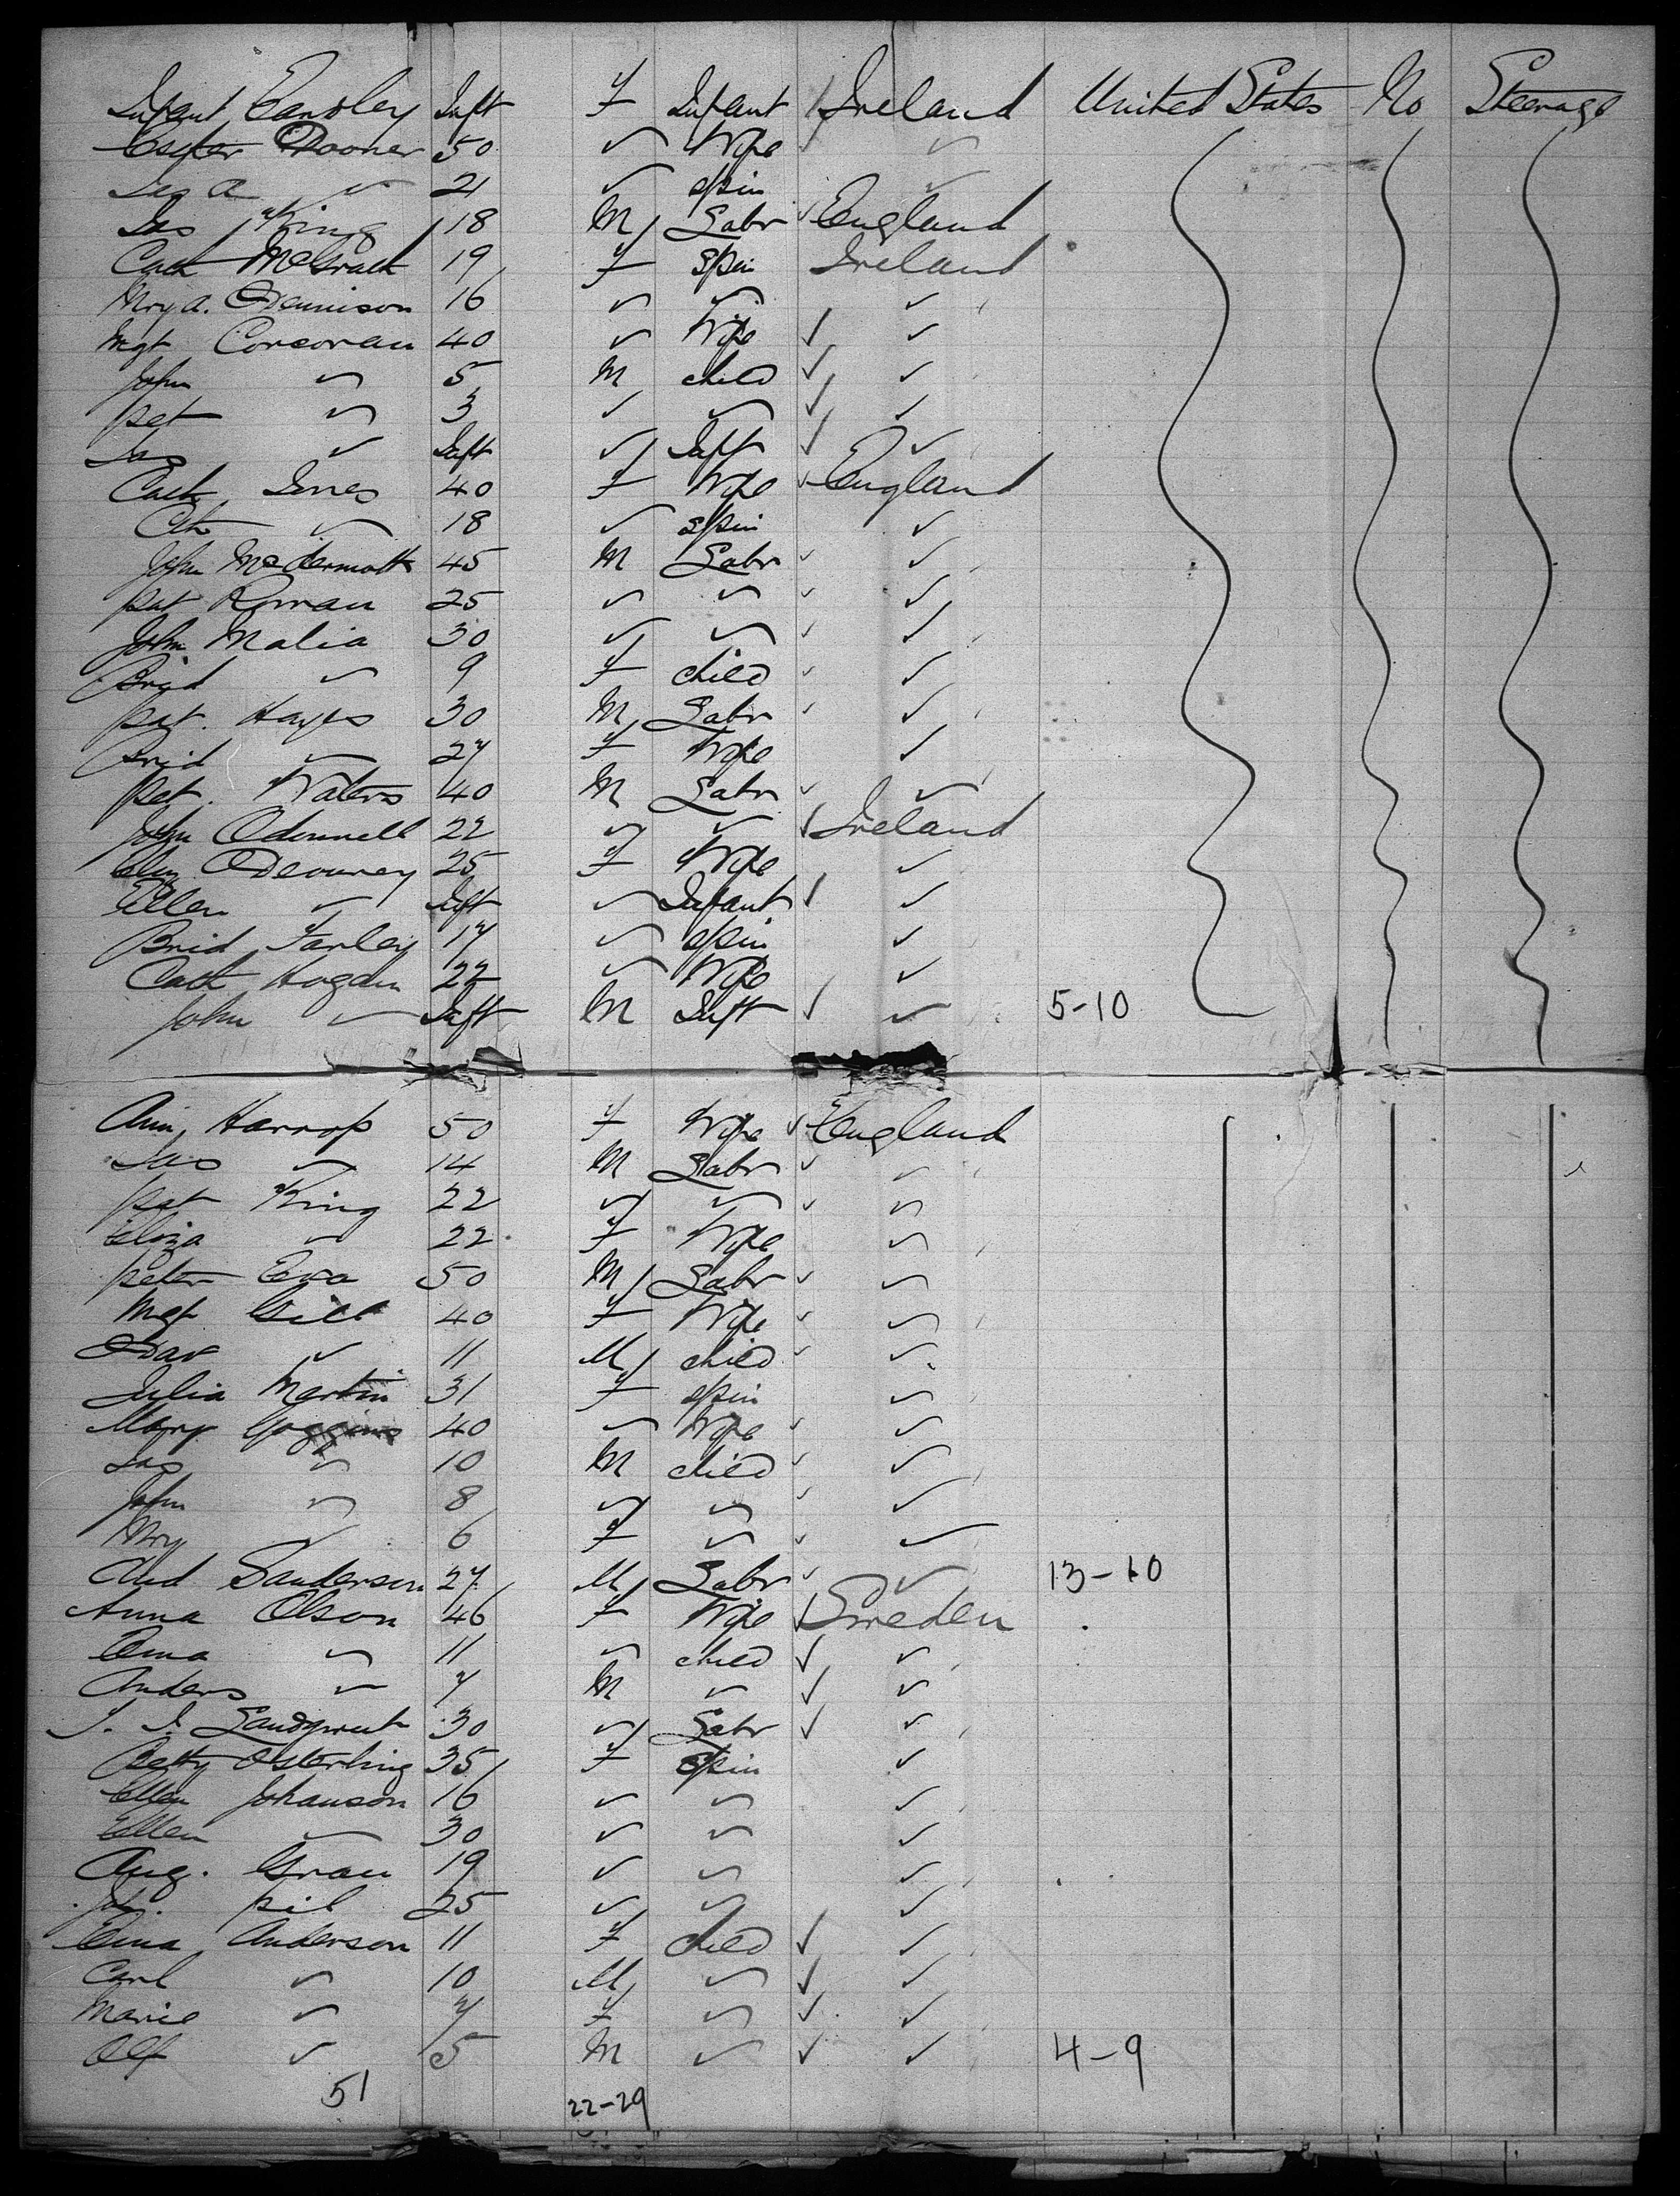 Infant Infт F Infant Ireland United States No Steerage
50 ✓ Wife ✓ ✓
Jas A ✓ 21 ✓ Spin ✓
Jas King 18 M Labr ✓ England
Cath McGrath 19 F Spin Ireland
Mry A. Dennison 16 ✓ ✓ ✓
Mgt Corcoran 40 ✓ Wife ✓ ✓
John ✓ 5 M child ✓ ✓
Pat ✓ 3 ✓ ✓ ✓ ✓
Jas ✓ Inft ✓ Inft ✓ ✓
Cath Jones 40 F Wife ✓ England
Cth ✓ 18 ✓ Spin ✓
John McDermott 45 M Labr ✓ ✓
Pat Ronan 25 ✓ ✓ ✓ ✓
John Malia 30 ✓ ✓ ✓ ✓
Brid ✓ 9 F child ✓ ✓
Pat. Hayes 30 M Labr ✓ ✓
Brid ✓ 27 F Wife ✓
Pat. Waters 40 M Labr ✓ ✓
John Odonnell 22 ✓ ✓ ✓ Ireland
25 F Wife ✓
Ellen ✓ Inft ✓ Infant ✓ ✓
Brid Farley 17 ✓ Spin ✓
Cath Hogan 22 ✓ Wife ✓
John ✓ Inft M Inft ✓ ✓ 5-10
Ann Harrop 50 F Wife ✓ England
Jas ✓ 14 M Labr ✓ ✓
Pat King 22 ✓ ✓ ✓ ✓
Eliza ✓ 22 F Wife ✓
Peter 50 M Labr ✓ ✓
Mgt Gill 40 F Wife ✓ ✓
Dav ✓ 11 M child ✓ ✓
Julia Martin 31 F Spin ✓
Mary Goggins 40 ✓ Wife ✓ ✓
Jas ✓ 10 M child ✓ ✓
John ✓ 8 ✓ ✓ ✓ ✓
Mry ✓ 6 F ✓ ✓ ✓
And Sanderson 27 M Labr ✓ ✓ 13-10
Anna Olson 46 F Wife ✓ Sweden
Ema ✓ 11 ✓ child ✓ ✓
Anders ✓ 7 M ✓ ✓ ✓
30 ✓ Labr ✓ ✓
Betty Osterling 35 F Spin ✓
Ellen Johanson 16 ✓ ✓ ✓
Ellen ✓ 30 ✓ ✓ ✓
Aug. Gran 19 ✓ ✓ ✓
Pil 25 ✓ ✓ ✓
Ema Anderson 11 F child ✓ ✓
Carl ✓ 10 M ✓ ✓ ✓
Marie ✓ 7 F ✓ ✓ ✓
Olf ✓ 5 M ✓ ✓ ✓ 4-9
51 22-29